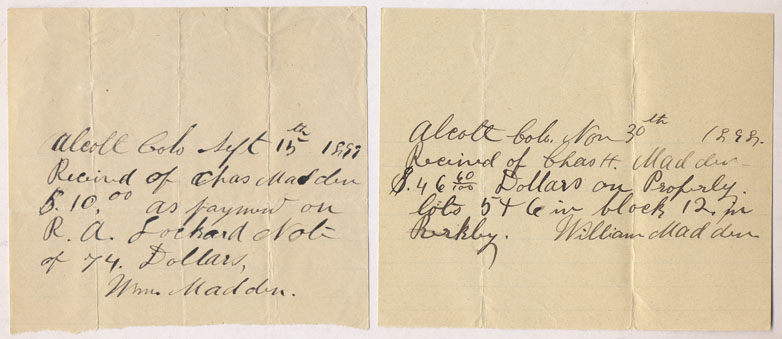 Alcott Colo Sept 15th 1899
Recieved of Chas Madden
$.10.00 as payment on
R. A. Lockard Note
of 74. Dollars,
Wm. Madden.
Alcott Colo. Nov 30th 1899.
Recieved of Chas H. Madden
$.46 60/100 Dollars on Property.
lots 5 + 6 in block 12. In
Berkley. William Madden